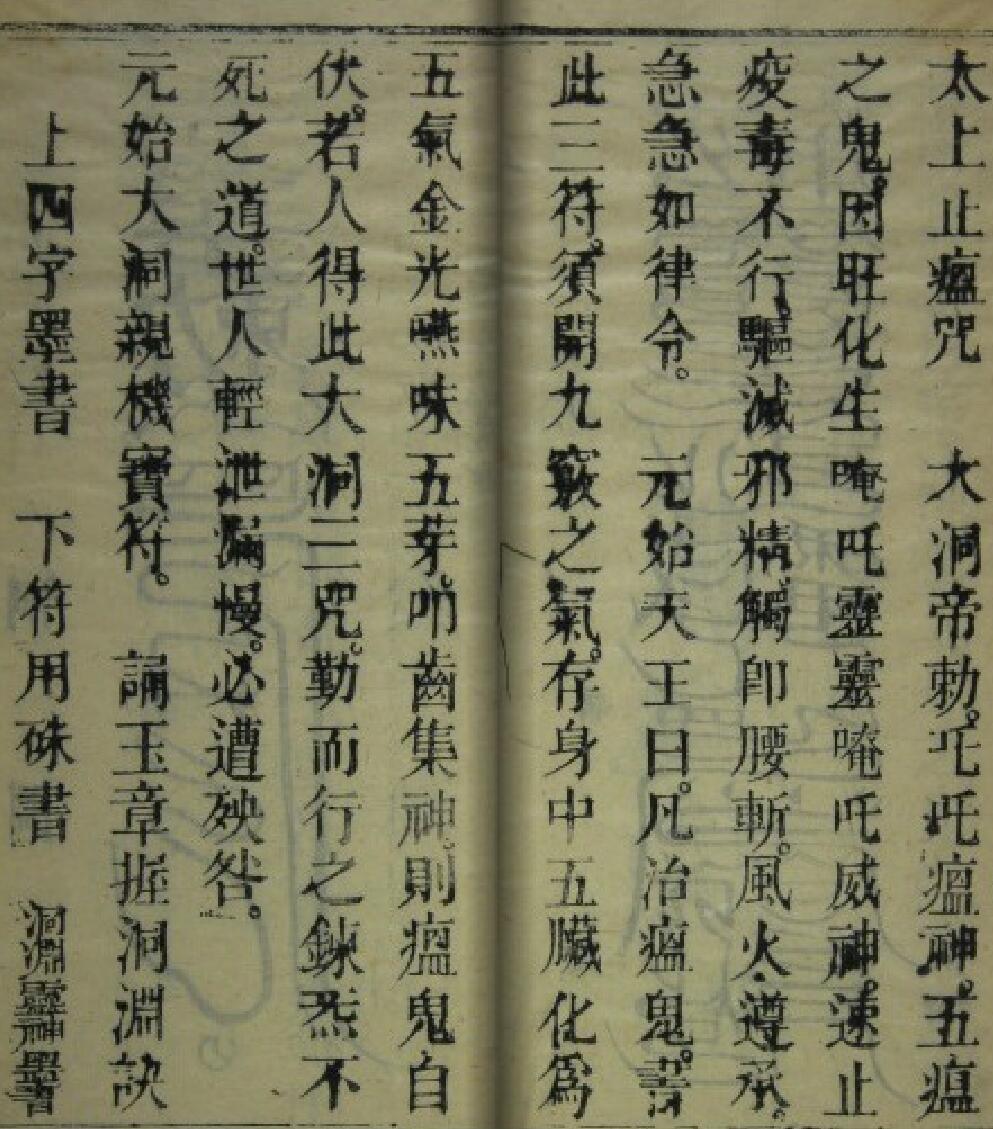 太上止瘟咒　大洞帝勅。吒吒瘟神。五瘟
之鬼。因旺化生唵吒靈靈唵吒威神。速止
疫毒不行。驅滅邪精。觸卽腰斬。風火遵承。
急急如律令。　元始天王曰。凡治瘟鬼。書
此三符。須開九竅之氣。存身中五臟化爲
五氣金光嚥味五芽。叩齒集神。則瘟鬼自
伏。若人得此大洞三咒。勤而行之鍊炁不
死之道。世人輕泄漏慢。必遭殃咎。
元始大洞親機寶符。　誦玉章握洞淵訣
上四字墨書　下符用硃書　洞淵靈神墨書